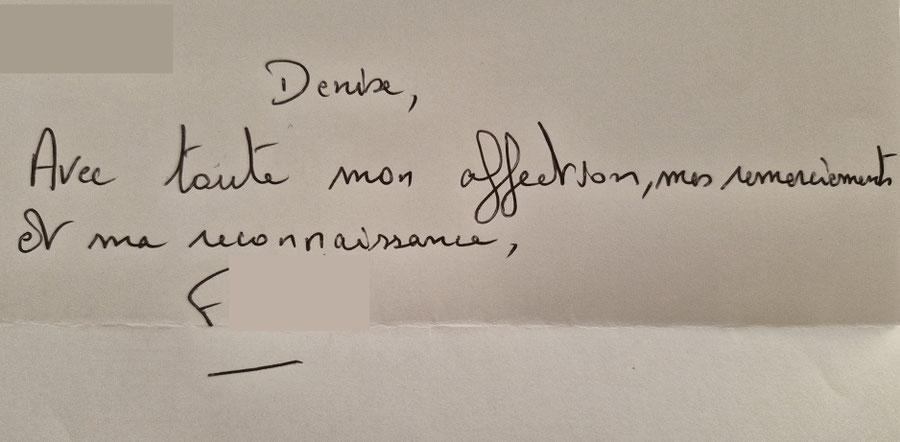 Denise,
Avec toute mon affection, mes remerciements
et ma reconnaissance,
F